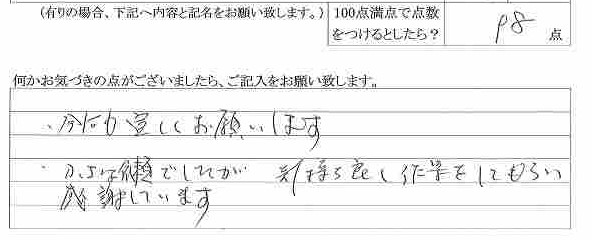 (有りの場合、下記へ内容と記名をお願い致します。)
100点満点で点数をつけるとしたら?
98 点
何かお気づきの点がございましたら、ご記入をお願い致します。
、今后も宜しくお願いします
・小さな依頼でしたが 気持ち良く作業をしてもらい
感謝しています